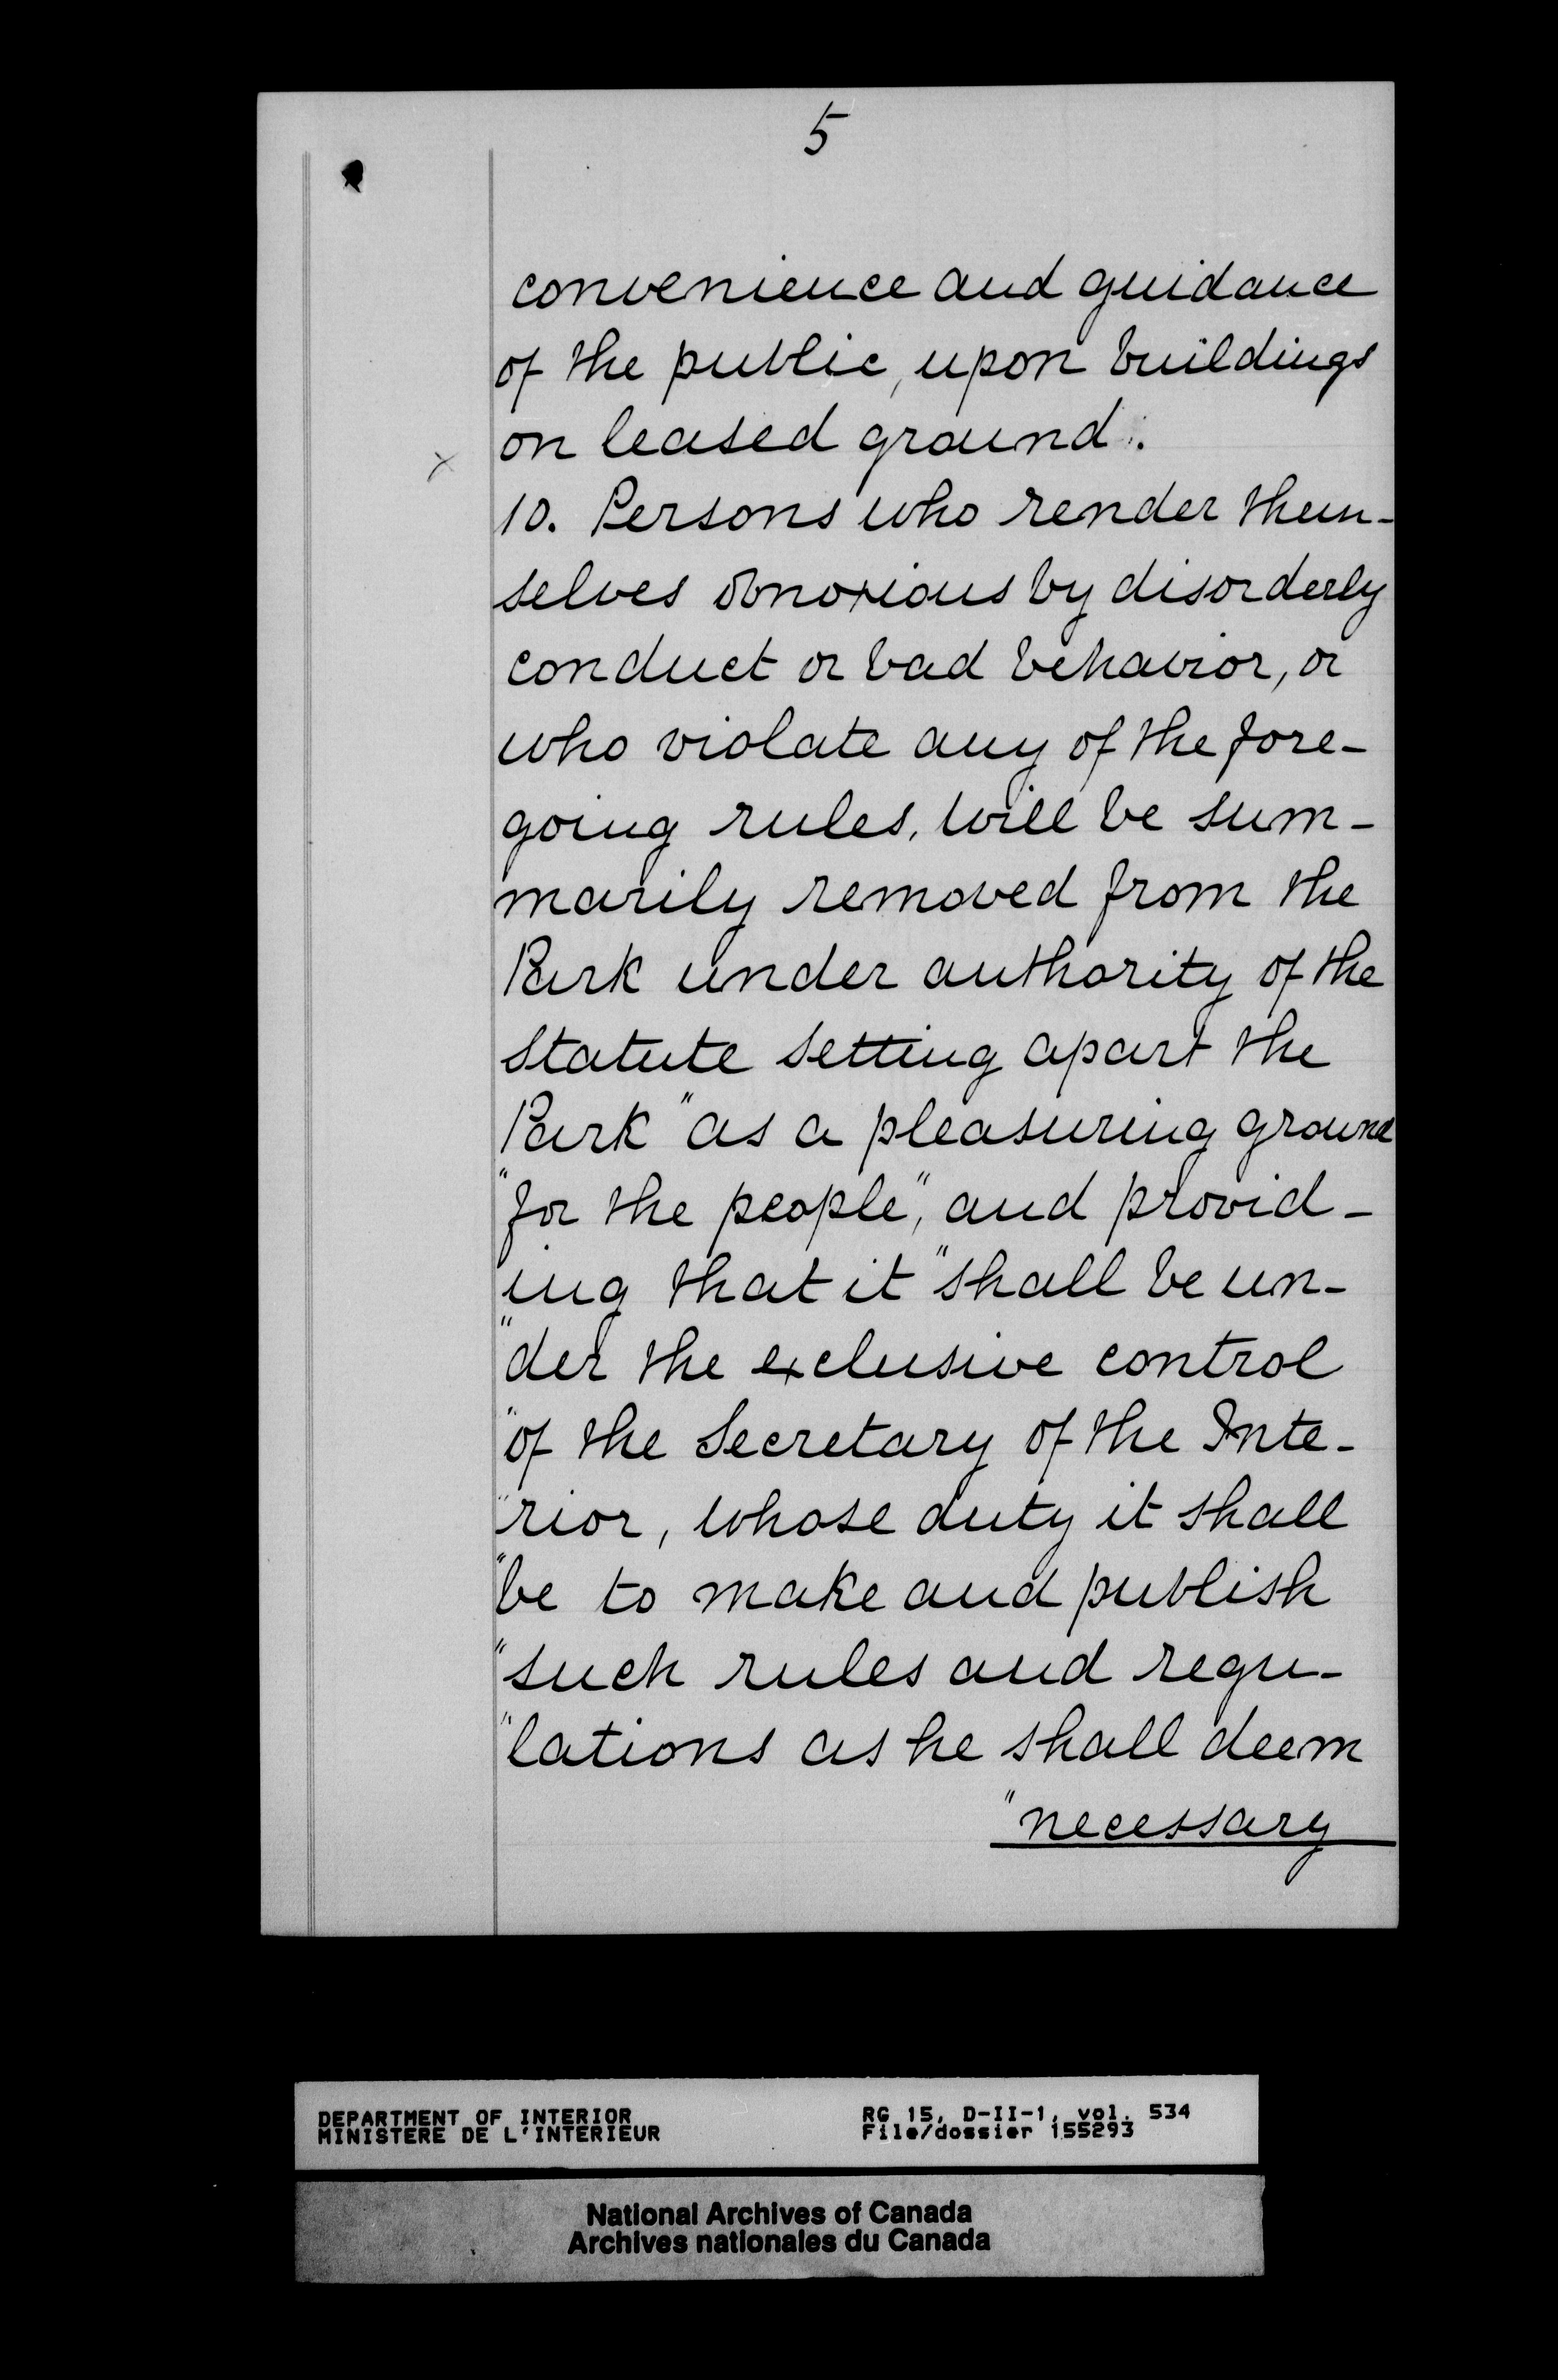 5
convenience and guidance
of the public, upon buildings
on leased ground.
x
10. Persons who render them-
selves obnoxious by disorderly
conduct or bad behavior, or
who violate any of the fore-
going rules, will be sum-
marily removed from the
Park under authority of the
Statute setting apart the
Park "as a pleasuring ground
"for the people", and provid-
ing that it "shall be un-
"der the exclusive control
"of the Secretary of the Inte-
"rior, whose duty it shall
"be to make and publish
"such rules and regu-
"lations as he shall deem
"necessary
DEPARTMENT OF INTERIOR
MINISTERE DE L'INTERIEUR
RG 15, D-II-1, vol. 534
File/dossier 155293
National Archives of Canada
Archives nationales du Canada